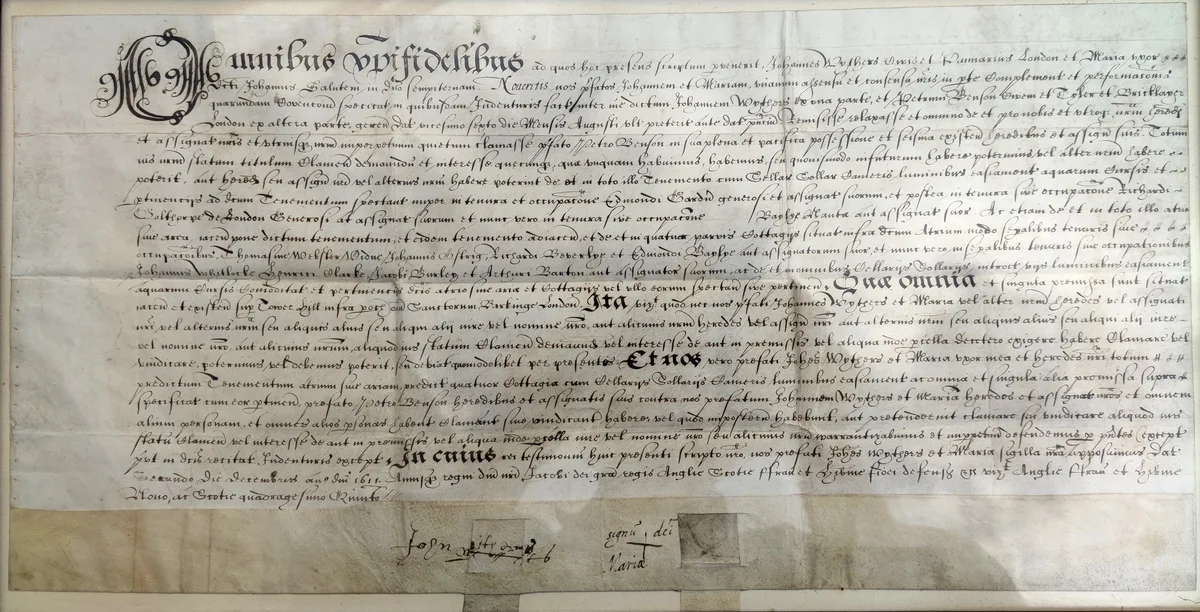 Omnibus xpifidelibus ad quos hoc presens scriptum pervenerit, Johannes Wythers Civis et London et Maria uxor
dicti Johannis Salutem in dno sempiternam. Noveritis nos pfatos Johannem et Mariam, unanimi assensu et consensu nris in pte Complement et performacionis
quarundam Convencionu specificat in quibusdam Indenturis fact inter me dictum Johannem Wythers ex una parte, et Petrum Benson Civem et Tyler et Bricklayer
London ex altera parte, geren dat vicesimo septo die Mensis Augusti ult preterit ante dat pntiu Remisisse relaxasse et omnino de et pro nobis et utroq nrm hered
et assignat nris et utriusq nrm imperpetuum quietum clamasse pfato Petro Benson in sua plena et pacifica possessione et seisina existen heredibus et assign suis Totum
ius nrm statum titulum Clameu demaund et interesse quecunq que unquam habuimus, habemus, seu quovismodo in futurum habere poterimus vel alter nrm habere
poterit, aut hered seu assign nri vel alterius nrm habere poterint de et in toto illo Tenemento cum Cellar Sollar Cameris luminibus easiament aquarum Cursis et
ptinencijs ad dcum Tenementum spectant nuper in tenura et occupacone Edmondi Gardin generosi et assignat suorum, et postea in tenura sive occupacone Richardi
Golthorpe de London Generosi at assignat suorum et nunc vero in tenura sive occupacone Baylye aut assignat suor Ac etiam de et in toto illo atrio
sive area iacen pone dictum tenementum, et eidem tenemento adiacen, et de et in quatuor parvis Cottagijs situat infra dcum Atrium modo sepalibus tenuris sive
occupacoibus Thomasine Webster Vidue, Johannis Richardi Beverlye et Edmondi Baylye aut assignatorum suor, et nunc vero in sepalibus tenuris sive occupationibus
Johannis Whitlocke Henrici Clarke Jacobi Burley et Arthuri Barton aut assignator suorum, ac de et in omnibus Cellarijs Sollarijs introit luminibus easiament
aquarum Cursis Comoditat et pertinencijs dcis atrio sive aree et Cottagijs vel ullo eorum spectan sive pertinen, Que omnia et singula premissa sunt situat
iacen et existen sup Tower hill infra poch Sanctorum Barkinge London. Ita viz quod nec nos pfati Johannes Wythers et Maria vel alter nrm heredes vel assignati
nri vel alterius nrm seu aliquis alius seu aliqui alij iure vel nomine nro, aut alicuius nrm heredes vel assign nri aut alterius nrm seu aliquis alius seu aliqui alij iure
vel nomine nro, aut alicuius nrum, aliquod ius statum Clameu demaund vel interesse de aut in premissis vel aliqua inde pcella decetero exigere habere Clamare vel
vindicare, poterimus vel debemus poterit, seu debeat quomodolibet per presentes Et nos vero prefati Johes Wythers et Maria uxor mea et heredes nri totum
predictum Tenementum atrium sive aream, predict quatuor Cottagia cum Cellarijs Sollarijs Cameris luminibus easiament ac omnia et singula alia premissa supra
specificat cum eor ptinen, prefato Petro Benson heredibus et assignatis suis contra nos prefatum Johannem Wythers et Maria heredes et assignat nros et omnem
aliam personam, et omnes alios psonas habent Clamant sive vindicant habere vel quovismodo imposterum habebunt, aut pretenderint clamare seu vindicare aliquod ius
statu Clameu vel interesse de aut in premissis vel aliqua inde pcella iure vel nomine nro seu alicuius nrm warrantizabimus et imppetuu defendemus p pntes (except
put in dcis recitat Indenturis except In cuius rei testimoniu huic presenti scripto nro, nos prefati Johes Wythers et Maria sigilla nra apposuimus Dat
Secundo die decembris ano dni 1611. Annoq regni dni nri Jacobi dei gra regis Anglie Scotie ffran et Hibnie fidei defens &c viz Anglie ffran et Hibnie
Nono, ac Scotie quadragesimo Quinto
John
signu dce
Marie